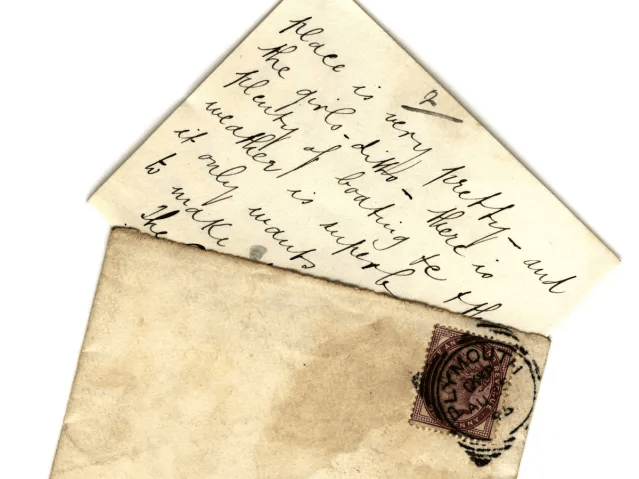 2
place is very pretty – and
the girls – ditto – there is
plenty of boating &c
weather is superb
it only wants
to make
The
PLYMOUTH
AU